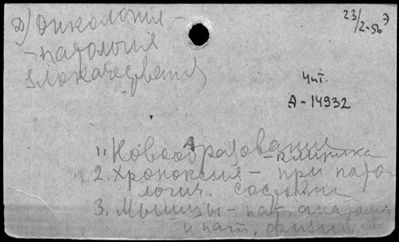 д) онкология -
- патология
злокачествен
23/2-56 Э
Чит.
А-14932
1. Новообразования - клиника
2. Хронаксия - при пато
логич. состояни
3. Мышцы - пат. анатомия
и пат. физиол